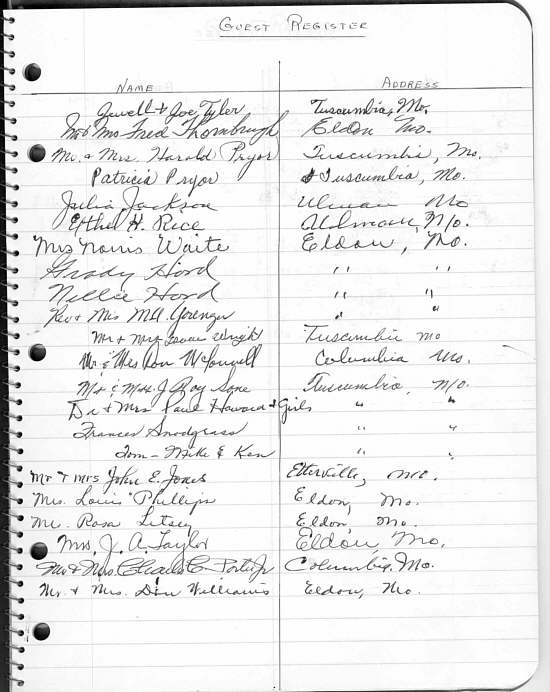 GUEST REGISTER
NAME ADDRESS
Jewell & Joe Tyler Tuscumbia, Mo.
Mr & Mrs Fred Thornbrugh Eldon Mo.
Mr. & Mrs. Harold Pryor Tuscumbia, Mo.
Patricia Pryor Tuscumbia, Mo.
Julia Jackson Ulman Mo
Ethel H. Rice Ulman, Mo.
Mrs Norris Waite Eldon, Mo.
Grady Hord " "
Nellie Hord " "
Rev & Mrs M.A. " "
Mr & Mrs Wright Tuscumbia Mo
Mr. & Mrs Don McConnell Columbia Mo.
Mr & Mrs J. Roy Sone Tuscumbia, Mo.
Dr & Mrs Paul Howard & Girls " "
Frances Snodgrass " "
Tom - Mike & Ken " "
Mr & Mrs John E. Jones Etterville, Mo.
Mrs. Louis Phillips Eldon, Mo.
Mr. Rosa Litsey Eldon, Mo.
Mrs. J. A. Taylor Eldon Mo.
Mr & Mrs. Charles C. Porter Jr Columbia, Mo.
Mr. & Mrs. Don Williams Eldon, Mo.